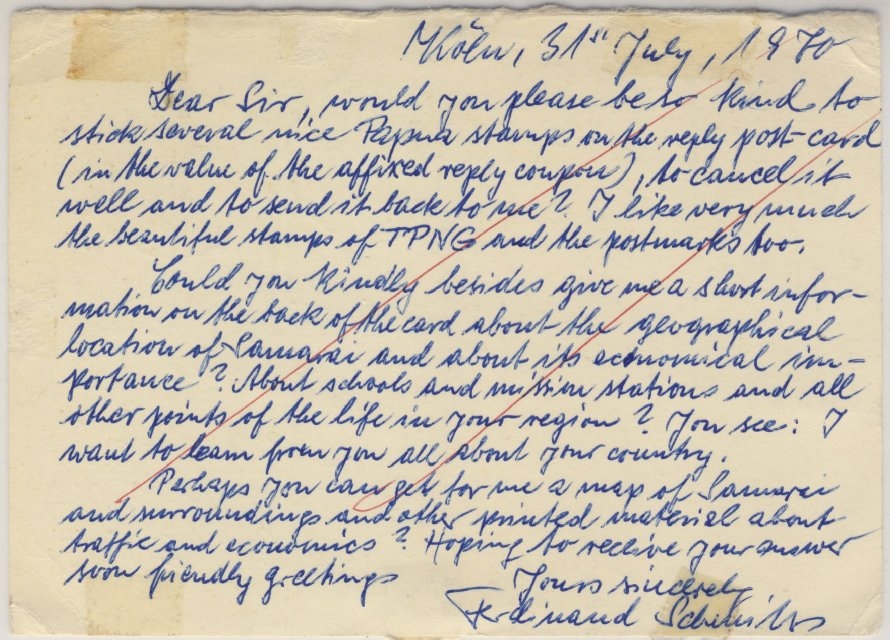 Köln, 31st July, 1970
Dear Sir, would you please be so kind to
stick several nice Papua stamps on the reply post-card
(in the value of the affixed reply coupon), to cancel it
well and to send it back to me? I like very much
the beautiful stamps of TPNG and the postmarks too.
Could you kindly besides give me a short infor-
mation on the back of the card about the geographical
location of Samarai and about its economical im-
portance? About schools and mission stations and all
other points of the life in your region? You see: I
want to learn from you all about your country.
Perhaps you can get for me a map of Samarai
and surroundings and other printed material about
traffic and economics? Hoping to receive your answer
soon friendly greetings
Yours sincerely
Ferdinand